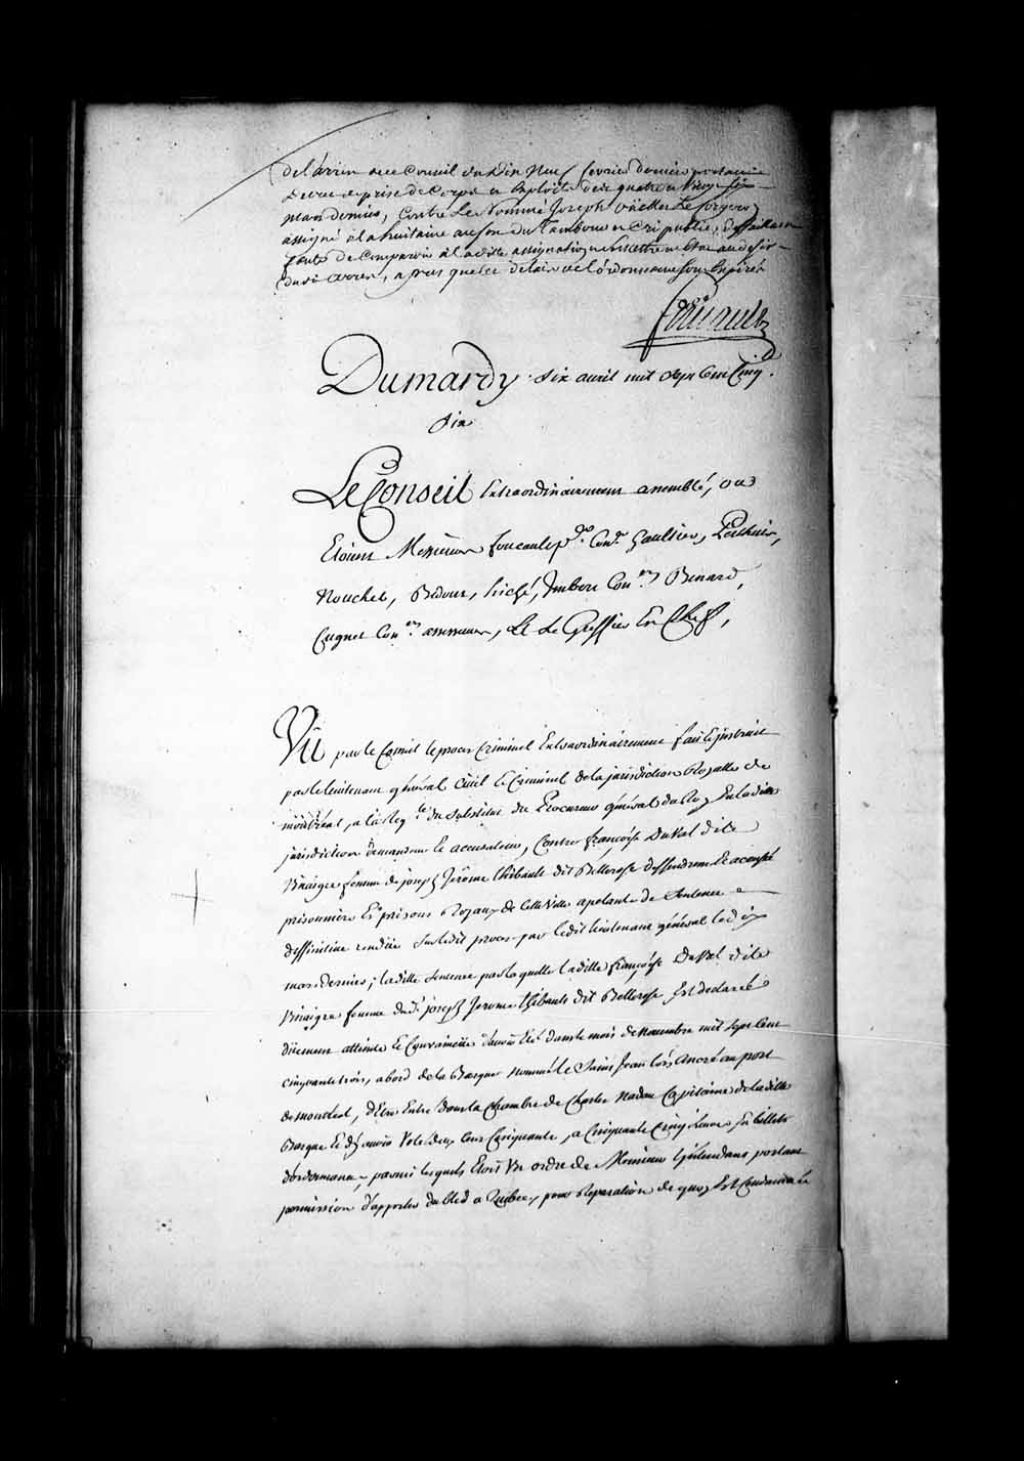 de l'arrêt de ce Conseil du dix Neuf fevrier dernier portant
Decret de prise de Corps et Exploits des quatre et Vingt six
mars dernier, Contre Le Nommé Joseph
assigné à la huitaine au son du Tambour et Cri public, deffaillant
faute de Comparoir à ladite assignation et
dudit arrest, apres que les delais de l'ordonnance sont Expirés
Foucault
Dumardy six avril mil sept Cent Cinq.te
six
Le Conseil Extraordinairement assemblé, ou
Etoient Messieurs foucault p.er Con.er Gaultier,
Nouchet, Bedout, hiché, Imbert Con.ers Benard,
Cugnet Con.ers assesseurs, Et Le Greffier En Chef,
Vû par le Conseil le procès Criminel Extraordinairement fait Et instruit
par le lieutenant général Civil Et Criminel de la jurisdiction Royalle de
montréal, a la Req.te du Substitut du Procureur général du Roy En ladite
jurisdiction demandeur Et accusateur, Contre françoise Duval dite
Vinaigre femme de joseph Jerôme thibault dit Bellerose deffenderesse Et accusée
prisonniere Es prisons Royaux de Cette Ville apelante de Sentence
deffinitive rendüe Sur ledit procès par ledit lieutenant général le dix
mars dernier; ladite Sentence par laquelle ladite françoise Duval dite
Vinaigre femme dud.t joseph Jerome thibault dit Bellerose Est declarée
düement atteinte Et Convaincüe d'avoir Eté dans le mois de Novembre mil sept Cent
cinquante trois, abord de la Barque Nommée le Saint Jean lors Ancrée au port
de montreal, d'Etre Entré dans la Chambre de Charles Nadeau Capitaine de ladite
Barque Et d'y avoir Volé deux Cent Cinquante, a Cinquante Cinq livres En billets
d'ordonnance, parmi lesquels Etoit Un ordre de Monsieur L'jntendant portant
permission d'apporter du bled a Quebec, pour Reparation de quoy Est Condamnée